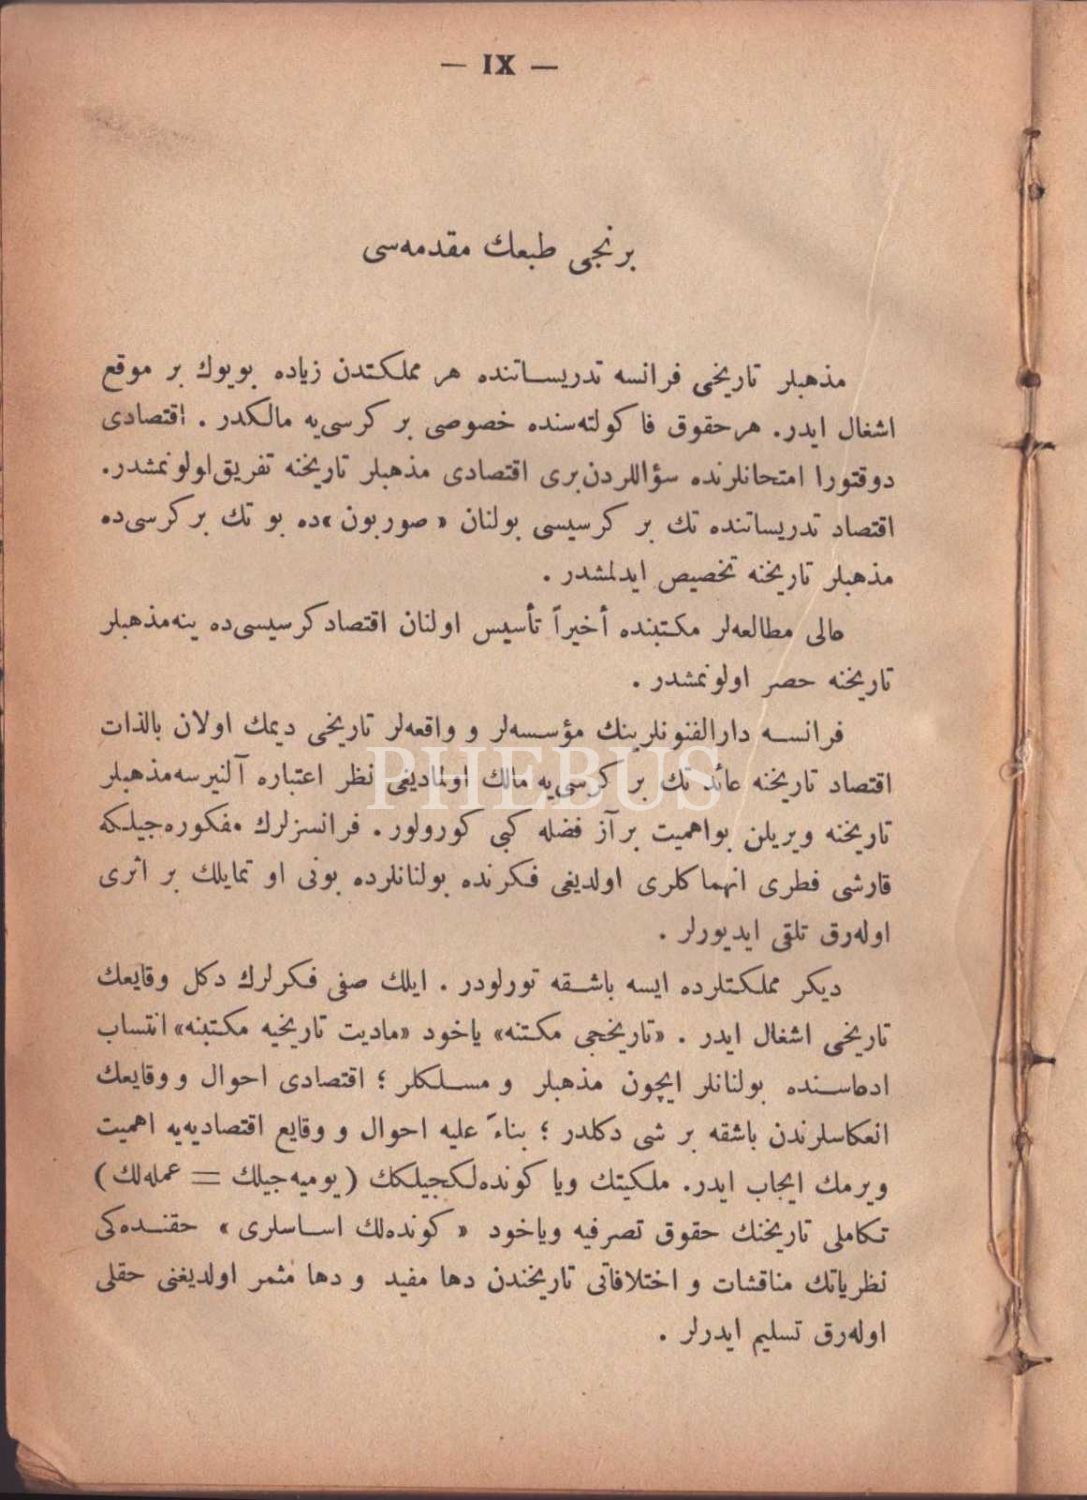 — IX —
برنجی طبعك مقدمه‌سی
مذهبلر تاریخی فرانسه تدریساتنده هر مملكتدن زیاده بویوك بر موقع
اشغال ایدر. هرحقوق فاكولته‌سنده خصوصی بر كرسی‌یه مالكدر . اقتصادی
دوقتورا امتحانلرنده سؤاللردن‌بری اقتصادی مذهبلر تاریخنه تفریق‌اولونمشدر.
اقتصاد تدریساتنده تك بر كرسیسی بولنان « صوربون »ده بو تك بر كرسی‌ده
مذهبلر تاریخنه تخصیص ایدلمشدر .
عالی مطالعه‌لر مكتبنده أخیراً تأسیس اولنان اقتصاد كرسیسی‌ده ینه‌مذهبلر
تاریخنه حصر اولونمشدر .
فرانسه دارالفنونلرینك مؤسسه‌لر و واقعه‌لر تاریخی دیمك اولان بالذات
اقتصاد تاریخنه عائد تك بر كرسی‌یه مالك اولمادیغی نظر اعتباره آلنیرسه‌مذهبلر
تاریخنه ویریلن بواهمیت برآز فضله كبی كورولور . فرانسزلرك مفكوره‌جیلكه
قارشی فطری انهماكلری اولدیغی فكرنده بولنانلرده بونی او تمایلك بر اثری
اوله‌رق تلقی ایدیورلر .
دیكر مملكتلرده ایسه باشقه تورلودر . ایلك صفی فكرلرك دكل وقایعك
تاریخی اشغال ایدر . «تاریخجی مكتنه» یاخود «مادیت تاریخیه مكتبنه» انتساب
ادعاسنده بولنانلر ایچون مذهبلر و مسلكلر ؛ اقتصادی احوال و وقایعك
انعكاسلرندن باشقه بر شی دكلدر ؛ بناءً علیه احوال و وقایع اقتصادیه‌یه اهمیت
ویرمك ایجاب ایدر. ملكیتك ویا كونده‌لكجیلكك (یومیه‌جیلك = عمله‌لك)
تكاملی تاریخنك حقوق تصرفیه ویاخود « كونده‌لك اساسلری » حقنده‌كی
نظریاتك مناقشات و اختلافاتی تاریخندن دها مفید و دها مثمر اولدیغنی حقلی
اوله‌رق تسلیم ایدرلر .
PHEBUS